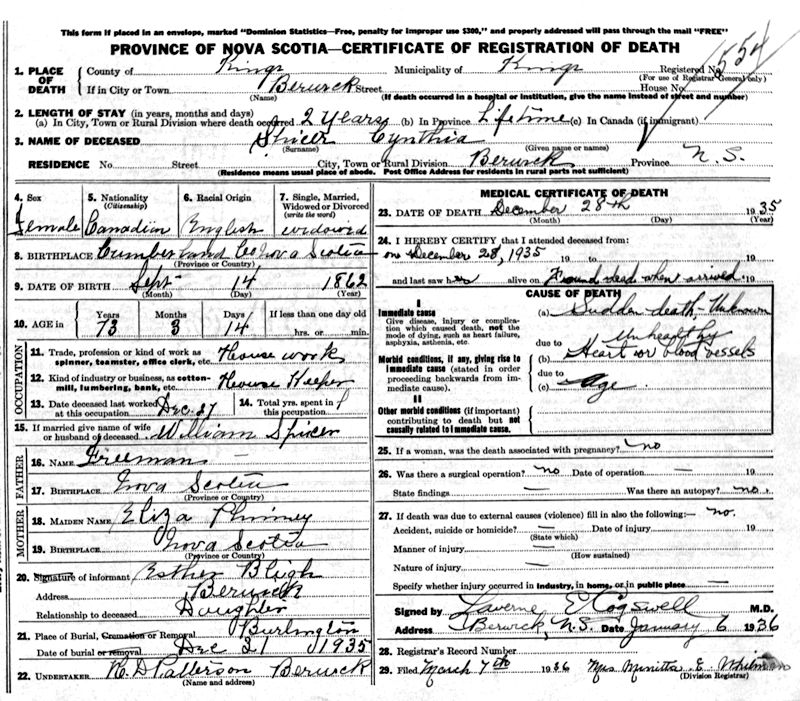 This form if placed in an envelope, marked "Dominion Statistics—Free, penalty for improper use $300," and properly addressed will pass through the mail "FREE"
PROVINCE OF NOVA SCOTIA—CERTIFICATE OF REGISTRATION OF DEATH
554
1. PLACE OF DEATH
County of Kings Municipality of Kings Registered No.
(For use of Registrar General only)
If in City or Town Berwick Street House No.
(Name) (If death occurred in a hospital or institution, give the name instead of street and number)
2. LENGTH OF STAY (in years, months and days)
(a) In City, Town or Rural Division where death occurred 2 years (b) In Province Lifetime (c) In Canada (if immigrant)
3. NAME OF DECEASED Spicer Cynthia
(Surname) (Given name or names)
RESIDENCE No. Street City, Town or Rural Division Berwick Province N.S.
(Residence means usual place of abode. Post Office Address for residents in rural parts not sufficient)
4. Sex
Female
5. Nationality (Citizenship)
Canadian
6. Racial Origin
English
7. Single, Married, Widowed or Divorced (write the word)
widowed
8. BIRTHPLACE Cumberland Co Nova Scotia
(Province or Country)
9. DATE OF BIRTH Sept 14 1862
(Month) (Day) (Year)
10. AGE in Years Months Days If less than one day old
73 3 14 hrs. or min.
OCCUPATION
11. Trade, profession or kind of work as spinner, teamster, office clerk, etc. House work
12. Kind of industry or business, as cotton-mill, lumbering, bank, etc. House Keeper
13. Date deceased last worked at this occupation Dec. 27
14. Total yrs. spent in this occupation
15. If married give name of wife or husband of deceased William Spicer
FATHER
16. Name Freeman —
17. Birthplace Nova Scotia
(Province or Country)
MOTHER
18. Maiden Name Eliza Phinney
19. Birthplace Nova Scotia
(Province or Country)
20. Signature of informant Esther Bligh
Address Berwick
Relationship to deceased Daughter
21. Place of Burial, Cremation or Removal Burlington
Date of burial or removal Dec 31 1935
22. UNDERTAKER Patterson Berwick
(Name and address)
MEDICAL CERTIFICATE OF DEATH
23. DATE OF DEATH December 28th 1935
(Month) (Day)
24. I HEREBY CERTIFY that I attended deceased from:
on December 28, 1935 19 to 19
and last saw her alive on Found dead when arrived 19
CAUSE OF DEATH
I
Immediate cause
Give disease, injury or complication which caused death, not the mode of dying, such as heart failure, asphyxia, asthenia, etc.
(a) Sudden death, Unknown
due to
Morbid conditions, if any, giving rise to immediate cause (stated in order proceeding backwards from immediate cause).
(b) Unhealthy Heart or blood vessels
due to
(c) Age.
II
Other morbid conditions (if important) contributing to death but not causally related to immediate cause.
25. If a woman, was the death associated with pregnancy? no
26. Was there a surgical operation? no Date of operation — 19
State findings — Was there an autopsy? no.
27. If death was due to external causes (violence) fill in also the following:— no.
Accident, suicide or homicide? — Date of injury 19
(State which)
Manner of injury —
(How sustained)
Nature of injury —
Specify whether injury occurred in industry, in home, or in public place —
Signed by Laverne E Cogswell M.D.
Address Berwick, N.S. Date January 6 1936
28. Registrar's Record Number
29. Filed March 7th 1936 Mrs E. Whitman
(Division Registrar)